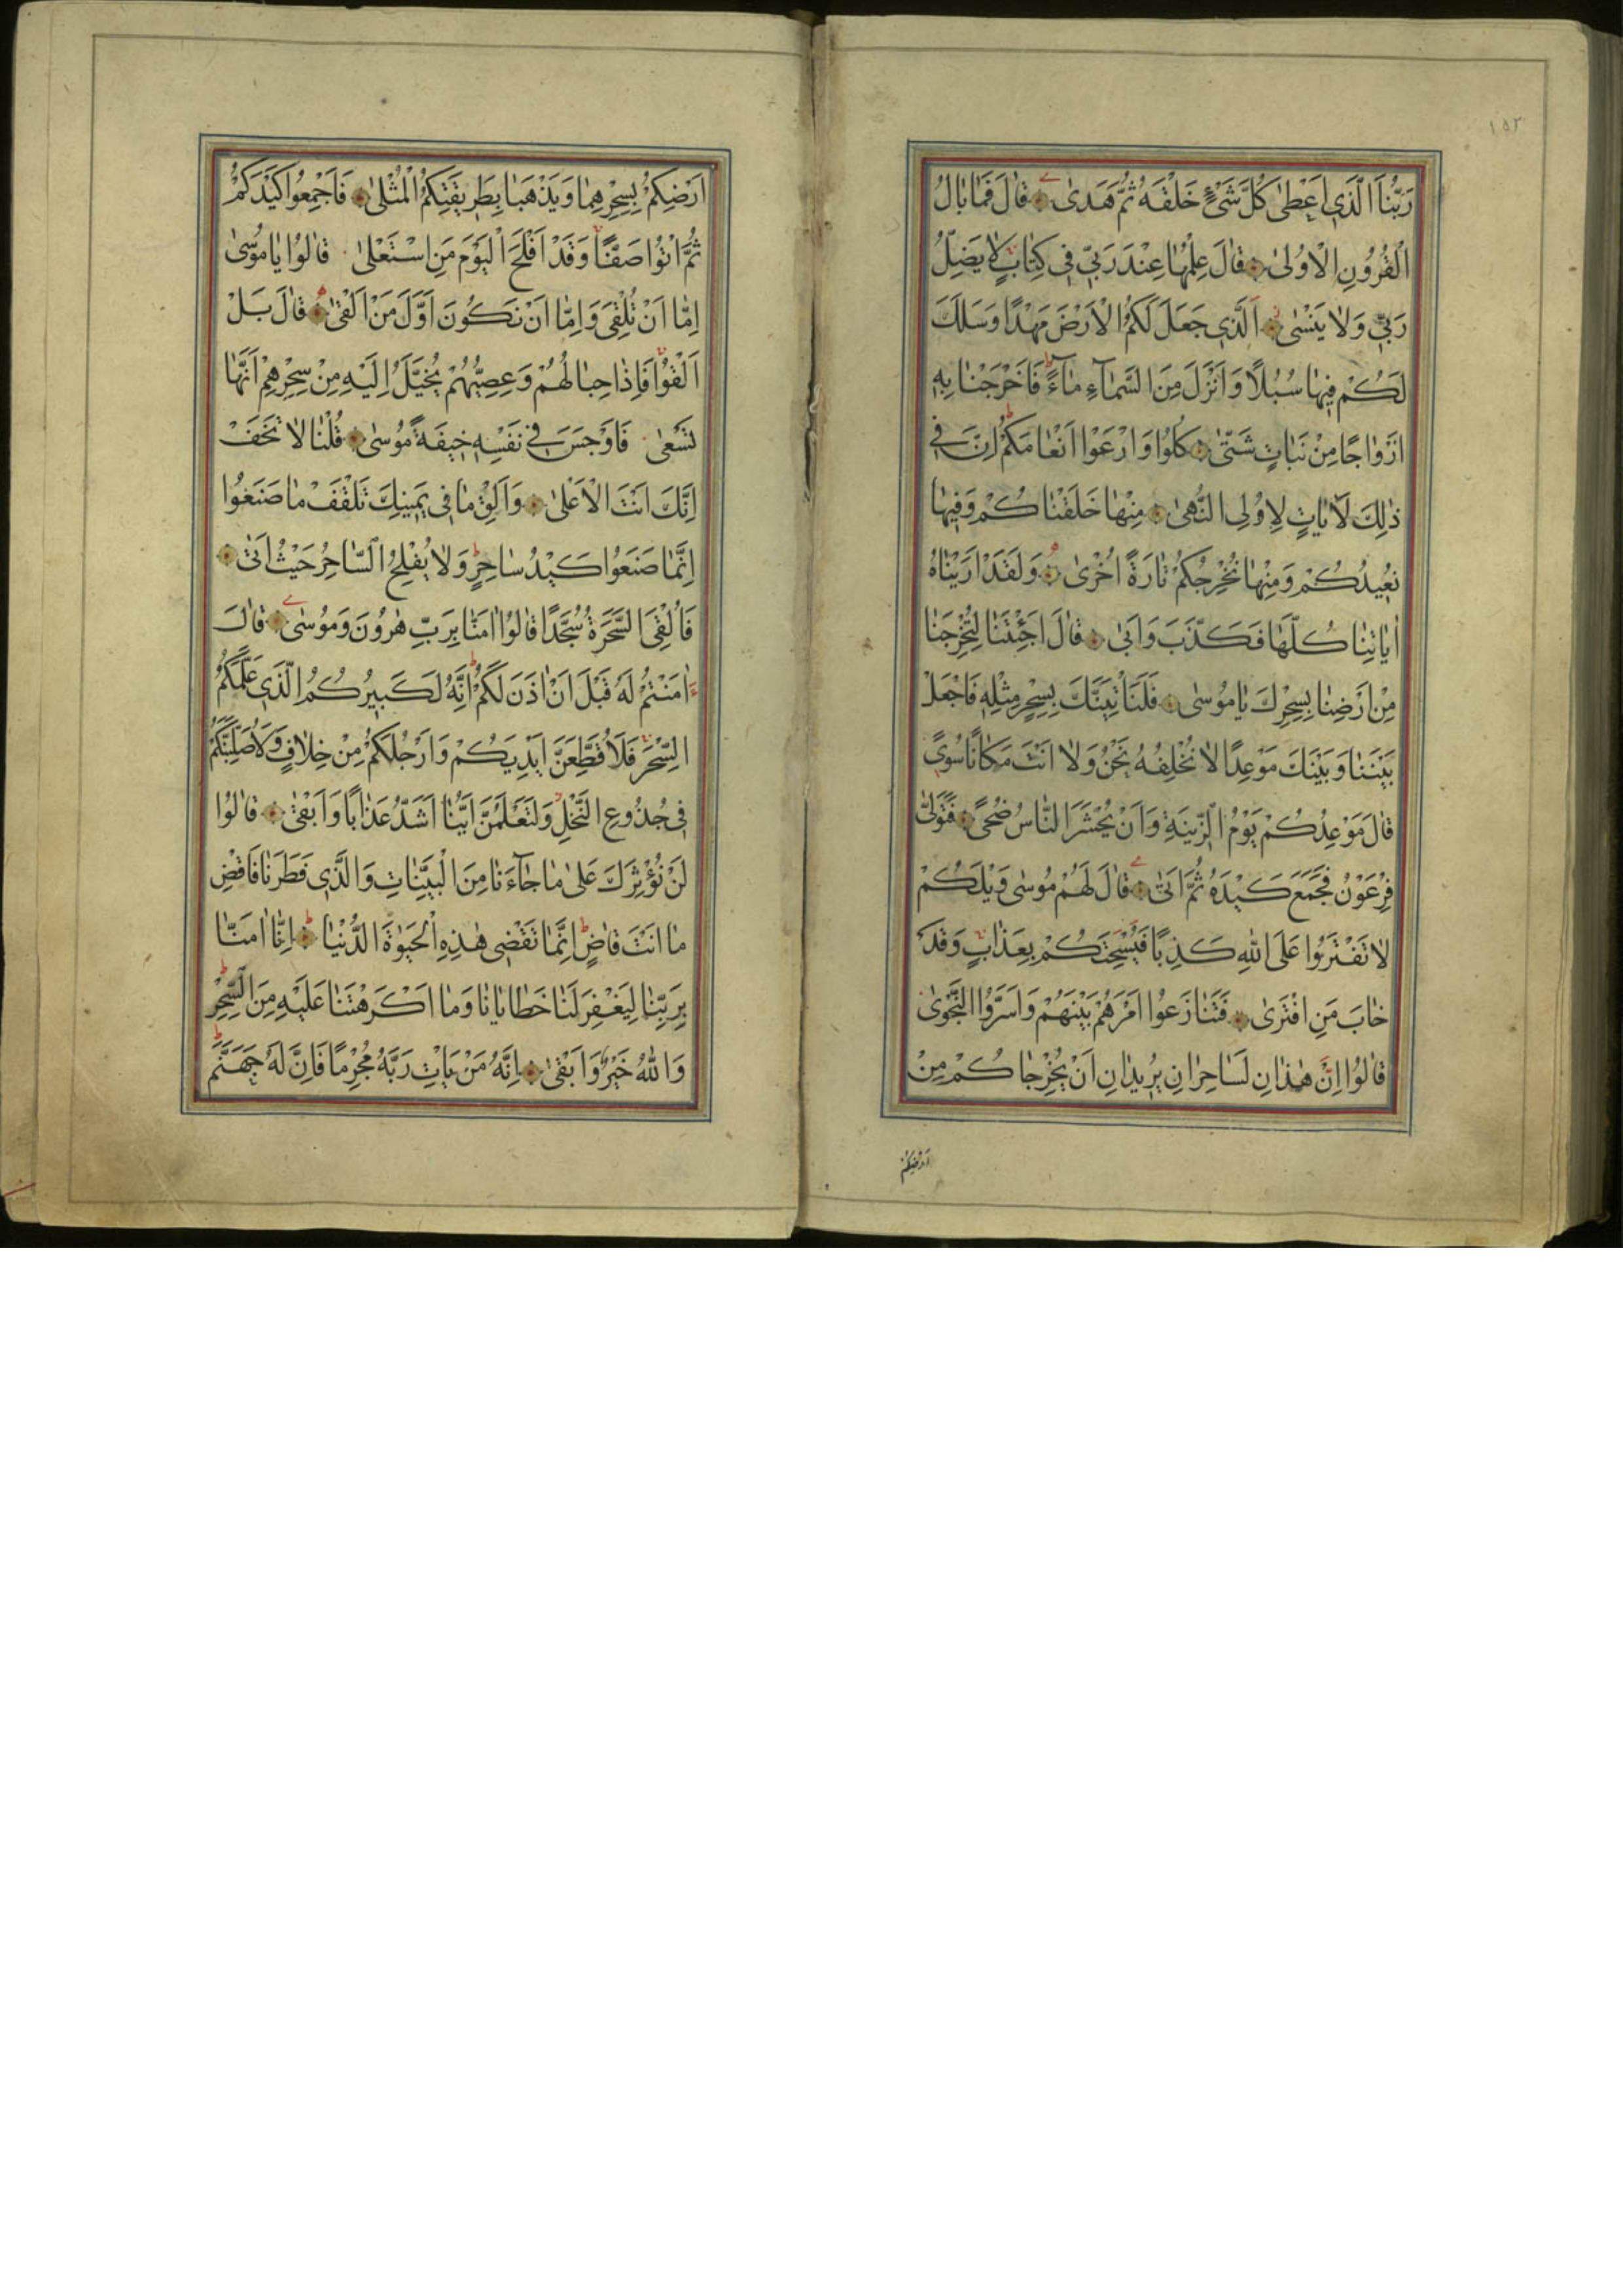 ١٥٢
رَبُّنَا الَّذِي اَعْطٰى كُلَّ شَيْءٍ خَلْقَهُ ثُمَّ هَدٰى قَالَ فَمَا بَالُ
الْقُرُونِ الْاُولٰى قَالَ عِلْمُهَا عِنْدَ رَبِّي فِي كِتَابٍ لَا يَضِلُّ
رَبِّي وَلَا يَنْسٰى اَلَّذِي جَعَلَ لَكُمُ الْاَرْضَ مَهْدًا وَسَلَكَ
لَكُمْ فِيهَا سُبُلًا وَاَنْزَلَ مِنَ السَّمَآءِ مَآءً فَاَخْرَجْنَا بِهِ
اَزْوَاجًا مِنْ نَبَاتٍ شَتّٰى كُلُوا وَارْعَوْا اَنْعَامَكُمْ اِنَّ فِي
ذٰلِكَ لَاٰيَاتٍ لِاُولِي النُّهٰى مِنْهَا خَلَقْنَاكُمْ وَفِيهَا
نُعِيدُكُمْ وَمِنْهَا نُخْرِجُكُمْ تَارَةً اُخْرٰى وَلَقَدْ اَرَيْنَاهُ
اٰيَاتِنَا كُلَّهَا فَكَذَّبَ وَاَبٰى قَالَ اَجِئْتَنَا لِتُخْرِجَنَا
مِنْ اَرْضِنَا بِسِحْرِكَ يَا مُوسٰى فَلَنَاْتِيَنَّكَ بِسِحْرٍ مِثْلِهِ فَاجْعَلْ
بَيْنَنَا وَبَيْنَكَ مَوْعِدًا لَا نُخْلِفُهُ نَحْنُ وَلَا اَنْتَ مَكَانًا سُوًى
قَالَ مَوْعِدُكُمْ يَوْمُ الزِّينَةِ وَاَنْ يُحْشَرَ النَّاسُ ضُحًى فَتَوَلّٰى
فِرْعَوْنُ فَجَمَعَ كَيْدَهُ ثُمَّ اَتٰى قَالَ لَهُمْ مُوسٰى وَيْلَكُمْ
لَا تَفْتَرُوا عَلَى اللهِ كَذِبًا فَيُسْحِتَكُمْ بِعَذَابٍ وَقَدْ
خَابَ مَنِ افْتَرٰى فَتَنَازَعُوا اَمْرَهُمْ بَيْنَهُمْ وَاَسَرُّوا النَّجْوٰى
قَالُوا اِنَّ هٰذَانِ لَسَاحِرَانِ يُرِيدَانِ اَنْ يُخْرِجَاكُمْ مِنْ
اَرْضِكُمْ
اَرْضِكُمْ بِسِحْرِهِمَا وَيَذْهَبَا بِطَرِيقَتِكُمُ الْمُثْلٰى فَاَجْمِعُوا كَيْدَكُمْ
ثُمَّ ائْتُوا صَفًّا وَقَدْ اَفْلَحَ الْيَوْمَ مَنِ اسْتَعْلٰى قَالُوا يَا مُوسٰى
اِمَّا اَنْ تُلْقِيَ وَاِمَّا اَنْ نَكُونَ اَوَّلَ مَنْ اَلْقٰى قَالَ بَلْ
اَلْقُوا فَاِذَا حِبَالُهُمْ وَعِصِيُّهُمْ يُخَيَّلُ اِلَيْهِ مِنْ سِحْرِهِمْ اَنَّهَا
تَسْعٰى فَاَوْجَسَ فِي نَفْسِهِ خِيفَةً مُوسٰى قُلْنَا لَا تَخَفْ
اِنَّكَ اَنْتَ الْاَعْلٰى وَاَلْقِ مَا فِي يَمِينِكَ تَلْقَفْ مَا صَنَعُوا
اِنَّمَا صَنَعُوا كَيْدُ سَاحِرٍ وَلَا يُفْلِحُ السَّاحِرُ حَيْثُ اَتٰى
فَاُلْقِيَ السَّحَرَةُ سُجَّدًا قَالُوا اٰمَنَّا بِرَبِّ هٰرُونَ وَمُوسٰى قَالَ
ءَاٰمَنْتُمْ لَهُ قَبْلَ اَنْ اٰذَنَ لَكُمْ اِنَّهُ لَكَبِيرُكُمُ الَّذِي عَلَّمَكُمُ
السِّحْرَ فَلَاُقَطِّعَنَّ اَيْدِيَكُمْ وَاَرْجُلَكُمْ مِنْ خِلَافٍ وَلَاُصَلِّبَنَّكُمْ
فِي جُذُوعِ النَّخْلِ وَلَتَعْلَمُنَّ اَيُّنَا اَشَدُّ عَذَابًا وَاَبْقٰى قَالُوا
لَنْ نُؤْثِرَكَ عَلٰى مَا جَآءَنَا مِنَ الْبَيِّنَاتِ وَالَّذِي فَطَرَنَا فَاقْضِ
مَا اَنْتَ قَاضٍ اِنَّمَا تَقْضِي هٰذِهِ الْحَيٰوةَ الدُّنْيَا اِنَّا اٰمَنَّا
بِرَبِّنَا لِيَغْفِرَ لَنَا خَطَايَانَا وَمَا اَكْرَهْتَنَا عَلَيْهِ مِنَ السِّحْرِ
وَاللهُ خَيْرٌ وَاَبْقٰى اِنَّهُ مَنْ يَاْتِ رَبَّهُ مُجْرِمًا فَاِنَّ لَهُ جَهَنَّمَ